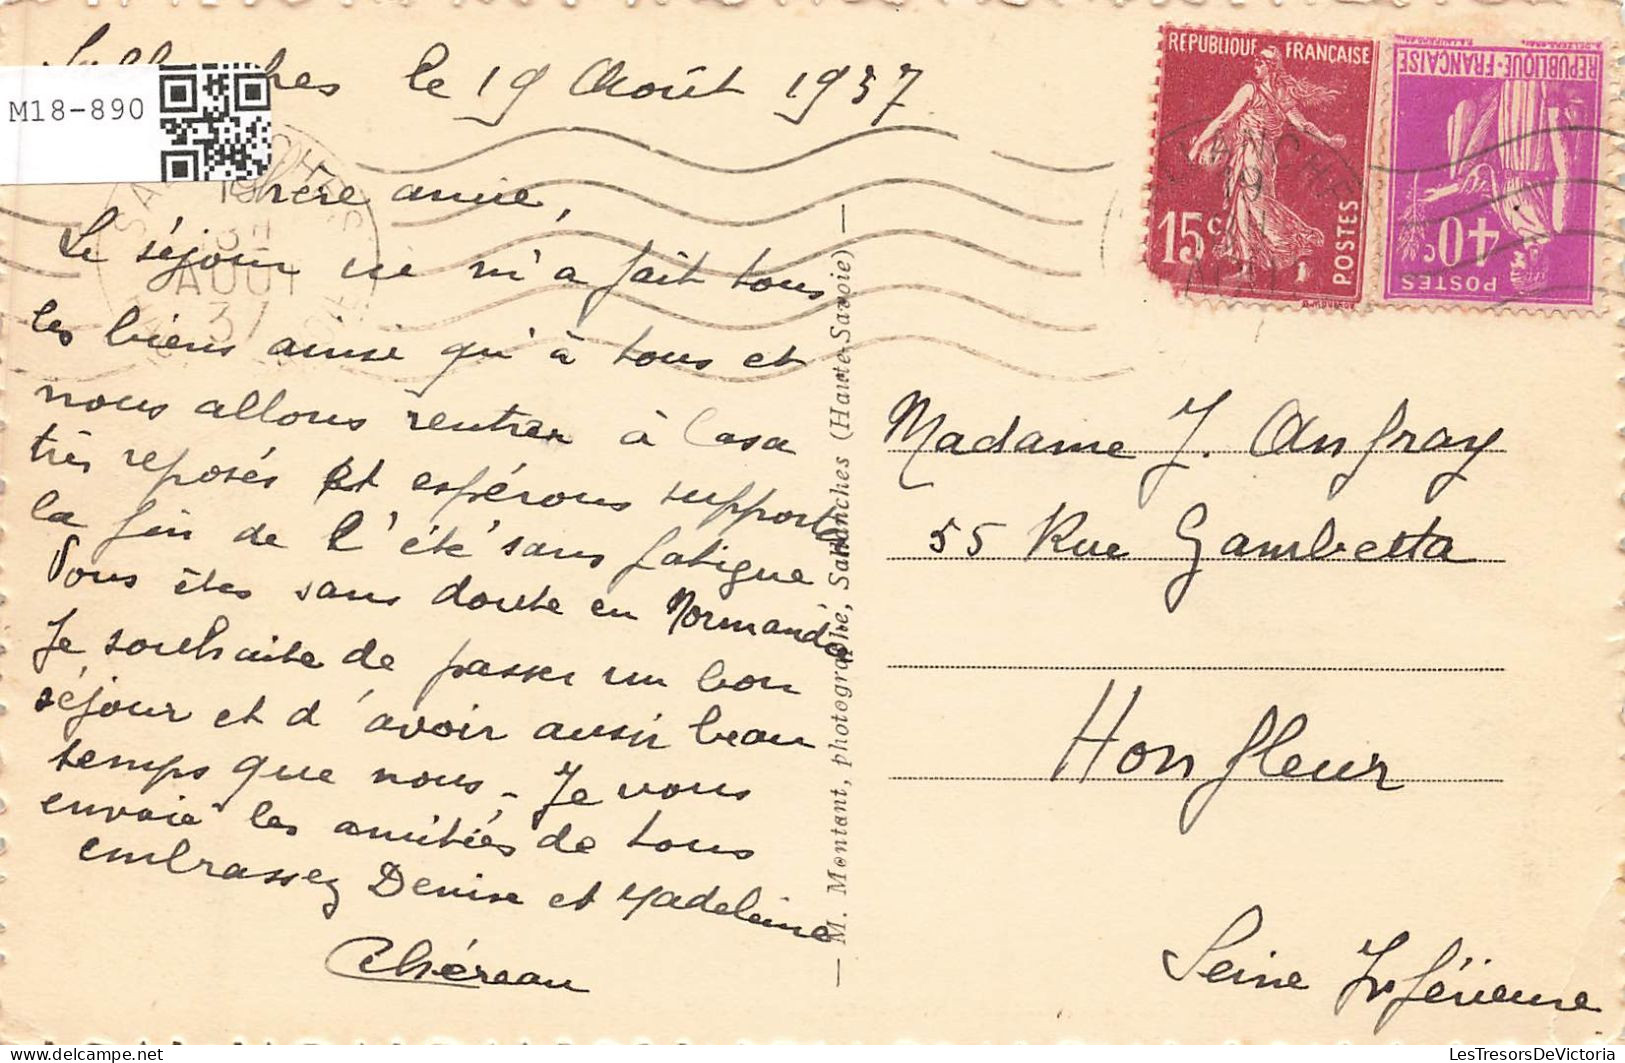 M18-890
le 19 Août 1937
chère amie,
Le séjour ici m'a fait tous
les biens ainsi qu'à tous et
nous allons rentrer à Casa
très reposés et espérons supporter
la fin de l'été sans fatigue
Vous êtes sans doute en Normandie
Je souhaite de passer un bon
séjour et d'avoir aussi beau
temps que nous - Je vous
envoie les amitiés de tous
embrassez Denise et Madeleine
Chéreau
— M. Montant, photographe, Sallanches (Haute-Savoie) —
REPUBLIQUE FRANÇAISE
15c
POSTES
REPUBLIQUE-FRANÇAISE
40c
POSTES
AOUT
37
Madame J. Anfray
55 Rue Gambetta
Honfleur
Seine Inférieure
delcampe.net
LesTresorsDeVictoria